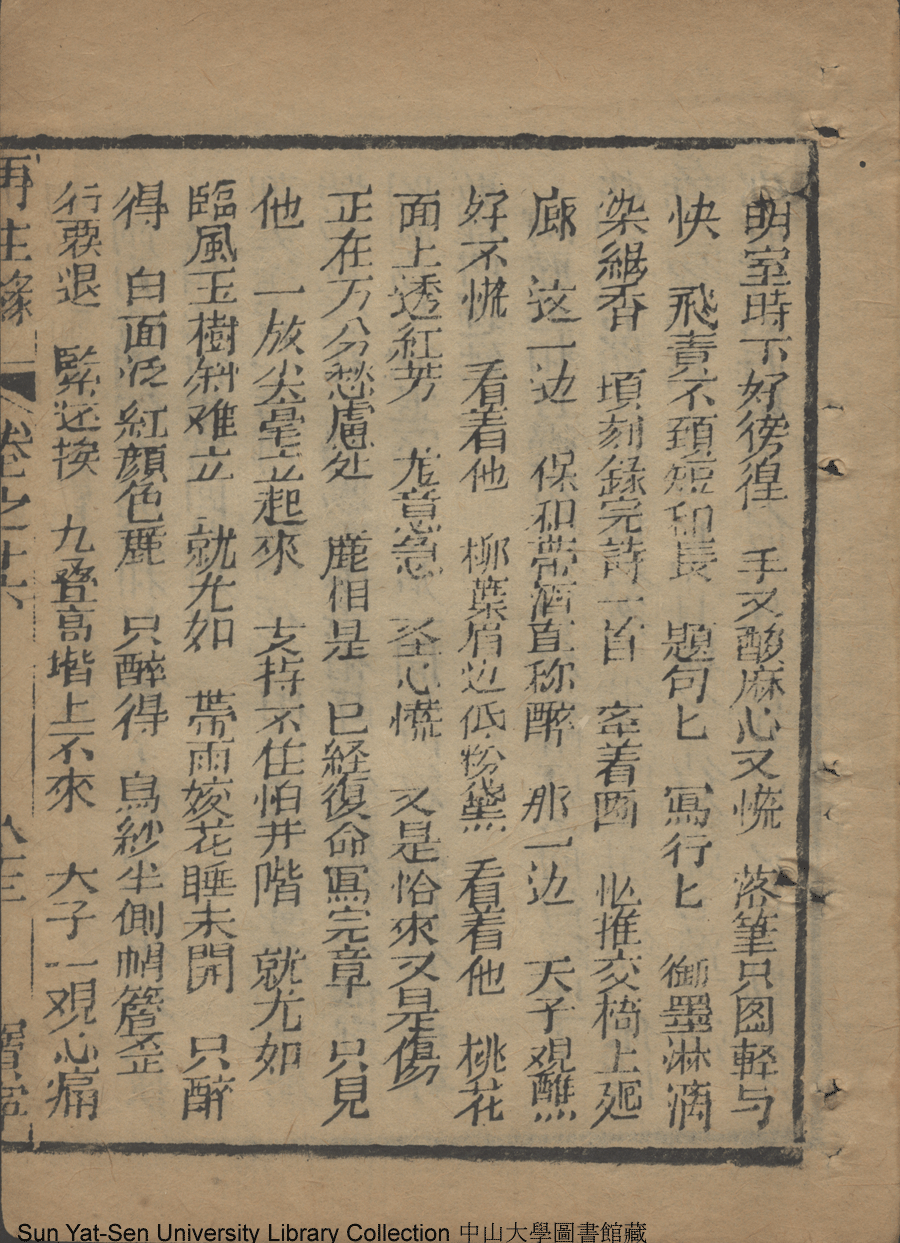 明室時下好徬徨　手又酸麻心又慌　落筆只图輕与
快　飛責不頚短和長　題句匕　寫行匕　御墨淋漓
染綐香　頃刻錄完詩一首　　　着　　　推交椅上
廊　这一边　保和帶酒直称醉　那一边　天子观醮
好不慌　看着他　柳葉眉边低粉黛　看着他　桃花
面上透紅芳　　意急　圣心慌　又是怡來又是傷
正在万分愁慮処　鹿相是　已経復命寫完章　只見
他　一放尖毫立起來　支持不住怕升階　就尤如
臨風玉樹斜难立　就尤如　帶雨姣花睡未開　只醉
得　白面泛紅顔色鹿　只醉得　烏紗半側帩簪歪
行要退　緊还挨　九登高堦上不來　大子一观心痛
再生緣　卷之十六　八十三　寳堂
Sun Yat-Sen University Library Collection 中山大學圖書館藏